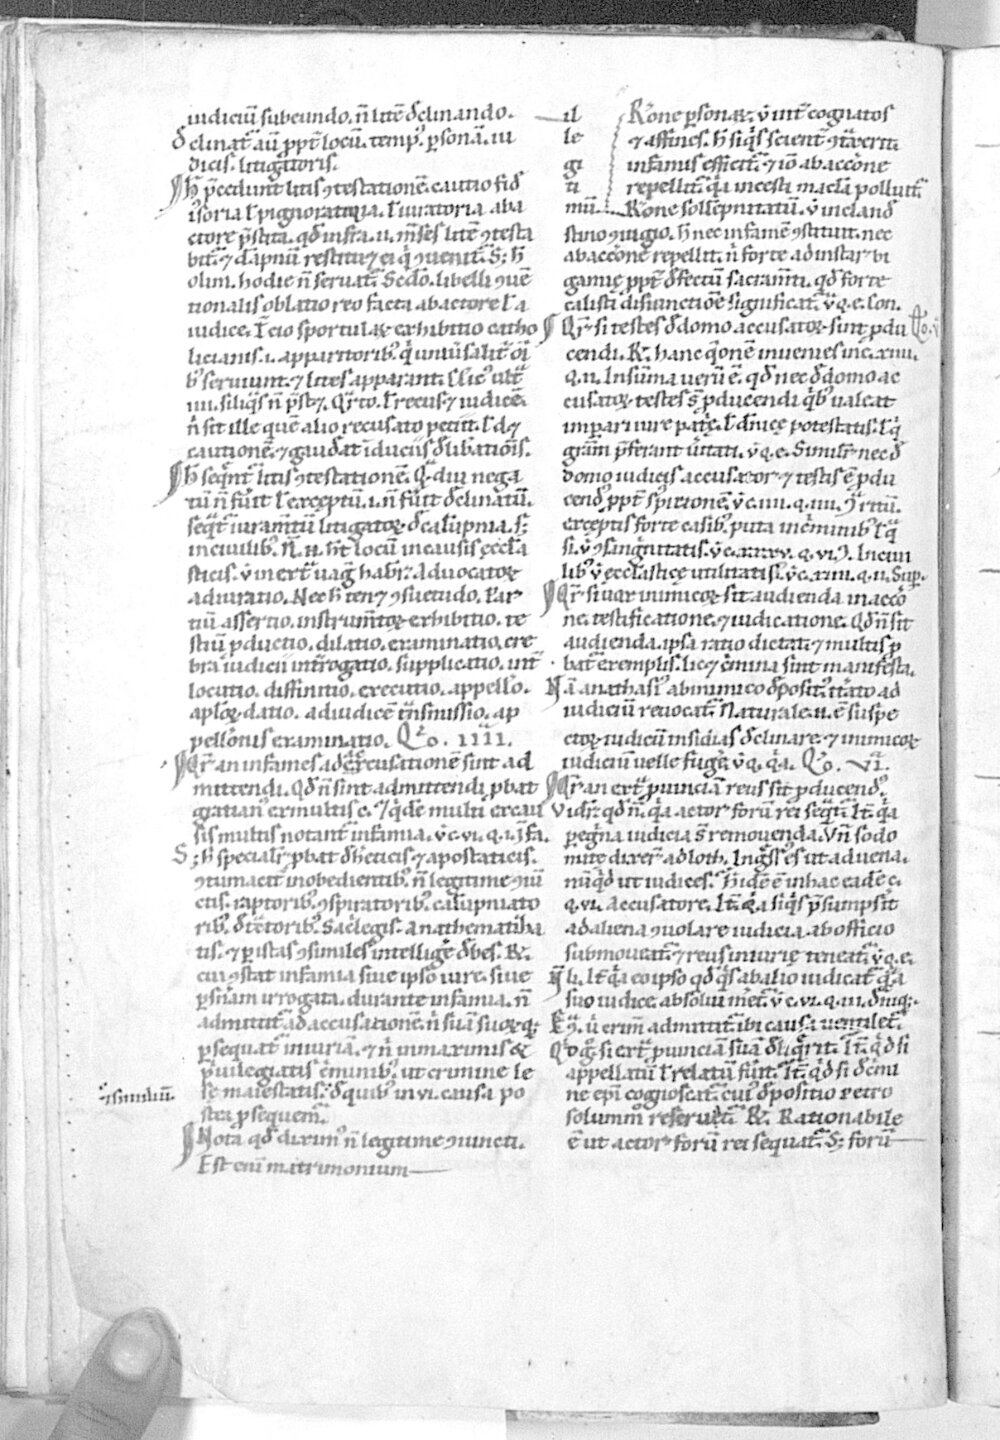 iudiciū subeundo. n̄ litē d̄clinando.
d̄ clinat᷑ aū ppt̄ locū. temp᷒. psonā. iu
dicis. litigatoris.
H̄ p̄cedunt litis ꝯtestationē. cautio fid
isoria l̄ pignoratitia. l̄ iuratoria. ab a
ctore p̄stita. qd̄ infra .ii. m̄ses litē ꝯtesta
bit᷑. ⁊ dāpnū restituet ei q̄ ꝯuenit᷑. S; h̄
olim. hodie n̄ servat᷑. Sc̄do. libelli ꝯuē
tionalis oblatio reo facta ab actore l̄ a
iudice. Itē eo sportulaꝝ exhibitio catho
licianis .i. apparitorib᷒. q̄ unīvsalit᷑ oī
b᷒ serviunt. ⁊ lites apparant.
iiii. siliq̄s n̄ p̄st&. Q̄rto. l̄ recus& iudicē.
n̄ sit ille quē alio recusato petiit. l̄ d&
cautionē. ⁊ gaudeat iduciis d̄libationis.
H̄ seq̄nt᷑ litis ꝯtestationē. Q̄diu nega
tū n̄ fūit l̄ exceptū .i. n̄ fūit d̄clinatū.
Seq̄t᷑ iuram̄tū litigatoꝝ d̄ calūpnia. s;
in civilib᷒. N̄ .n. h̄t locū in causis eccl̄a
sticis. advocatoꝝ
adiuratio. Nec h̄ ten& ꝯsuetudo. Par
tiū assertio. instrum̄toꝝ exhibitio. te
stiū pductio. dilatio. examinatio. cre
bra iudicii int̄rogatio. supplicatio. int̄
locutio. diffinitio. executio. appell̄o.
aplōꝝ datio. ad iudicē t̄nsmissio. ap
pell̄onis examinatio. Qō. IIII.
Q̄r̄ an infames ad accusationē sint ad
mittendi. Qd̄ n̄ sint admittendi pbat
gratian᷒ ex multis c. ⁊ q̄dē multi ex cau
sis multis notant᷑ infamia. v̄ c. vi. q. i. īfa.
S; h̄ speciali᷑ pbat d̄ h̄eticis ⁊ apostaticis.
ꝯtumacit᷑ inobedientib᷒. n̄ legitime ꝯiū
ctis. raptorib᷒. ꝯspiratorib᷒. calūpniato
rib᷒. d̄t̄ctorib᷒. Sac̄legis. anathematiza
tis. ⁊ p istas ꝯsimiles intellige d̄bes. R̄.
cui ꝯstat infamia sive ipso iure. sive
p sn̄iam irrogata. durante infamia. n̄
admittit᷑ ad accusationē. n̄ suā suoꝝ q;
psequat᷑ iniuriā. ⁊ n̄ in maximis &
p̄vilegiatis c̄minib᷒. ut crimine le
se maiestatis. d̄ quib᷒ in vi. causa po
stea psequem᷑.
Nota qd̄ dixim᷒ n̄ legitime ꝯiuncti.
Est enī matrimonium
⁊similiū.
il
le
gi
ti
mū.
Rōne psonaꝝ. v̄ int̄ cognatos
⁊ affines. h̄ siq̄s scient᷑ ꝯt̄xerit
infamis efficit᷑. ⁊ iō ab accōne
repellit᷑. q̄a incesti macl̄a polluit᷑.
Rōne sollēpnitatū. v̄ in cland̄
stino ꝯiugio. h̄ nec infamē ꝯstituit. nec
ab accōne repellit. n̄ forte ad instar bi
gamię ppt̄ d̄fectū sacram̄ti. qd̄ forte
calisti disiunctiōe significat᷑. v̄ q. e. Con.
Q̄r̄ si testes d̄ domo accusatoꝝ sint pdu
Qō. V
cendi. R̄. hanc q̄onē invenies in c. xiiii.
q. ii. In sūma verū ē. qd̄ nec d̄ domo ac
cusatoꝝ testes s̄ pducendi q̄b᷒ valeat
imperari iure patę. l̄ d̄nicę potestatis. l̄ q̄
grām p̄ferant v̄itati. v̄ q. e. Simili᷑ nec d̄
domo iudicis accusator ⁊ testis ē pdu
cend᷒ ppt̄ sp̄itionē. v̄ c. iiii. q. iiii.
exceptis forte casib᷒. puta in c̄minib᷒ l̄ q̄
si. v̄ ꝯsanguītatis. v̄ c. xxxv. q. vi. In civi
lib᷒ v̄ ecclāsticę utilitatis. v̄ c. xiiii. q. ii. Sup.
Q̄r̄ si vox inimicoꝝ sit audienda in accō
ne. testificatione. ⁊ iudicatione. Qd̄ n̄ sit
audienda. ipsa ratio dictat. ⁊ multis p
bat᷑ exemplis. lic& c̄mina sint manifesta.
Nā anathasi᷒ ab inimico d̄posit᷒ ad
iudiciū revocat᷑. Naturale .n. ē suspe
ctoꝝ iudicū insidias d̄clinare. ⁊ inimicoꝝ
iudiciū velle fuge. v̄ q. q̄a. Qō. VI.
Q̄r̄ an ext̄ pvinciā reus sit pducend᷒.
Videt᷑ qd̄ n̄. q̄a actor forū rei seq̄t᷑. It̄. q̄a
pegrina iudicia s̄ removenda. Un̄ sodo
mitę dixer̄ ad loth. Ingss᷒ es ut advena.
nūq̄d ut iudices. h̄ idē ē in hac eadē c.
q. vi. Accusatore. It̄. q̄a siq̄s p̄sumpsit
ad aliena ꝯvolare iudicia. ab officio
submoveat᷑. ⁊ reus iniurię teneat᷑. v̄ q. e.
N̄ li. It̄. q̄a eo ipso qd̄ q̄s ab alio iudicat᷑ q̄ a
suo iudice. absolvi. v̄ c. vi. q. iii. d̄niq;.
v̄ crim̄ admittit᷑. ibi causa ventilet᷑.
si ext̄ pvinciā suā d̄liq̄rit. It̄. q̄d si
appellatū l̄ relatū fūit. It̄. q̄d si d̄ c̄mi
ne ep̄i cognoscat᷑. cui᷒ d̄positio retro
solummō reservet᷑. R̄. Rationabile
ē ut actor forū rei sequat᷑. S; forū